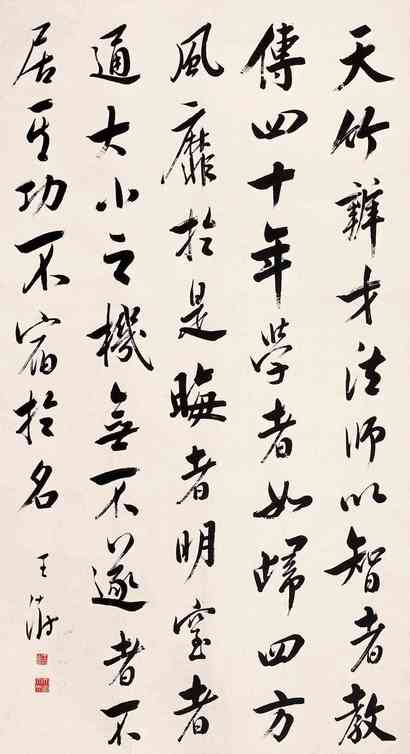 天竹辨才法師以智者教
傳四十年學者如歸四方
風靡於是晦者明窒者
通大小之機無不遂者不
居其功不宿於名
王